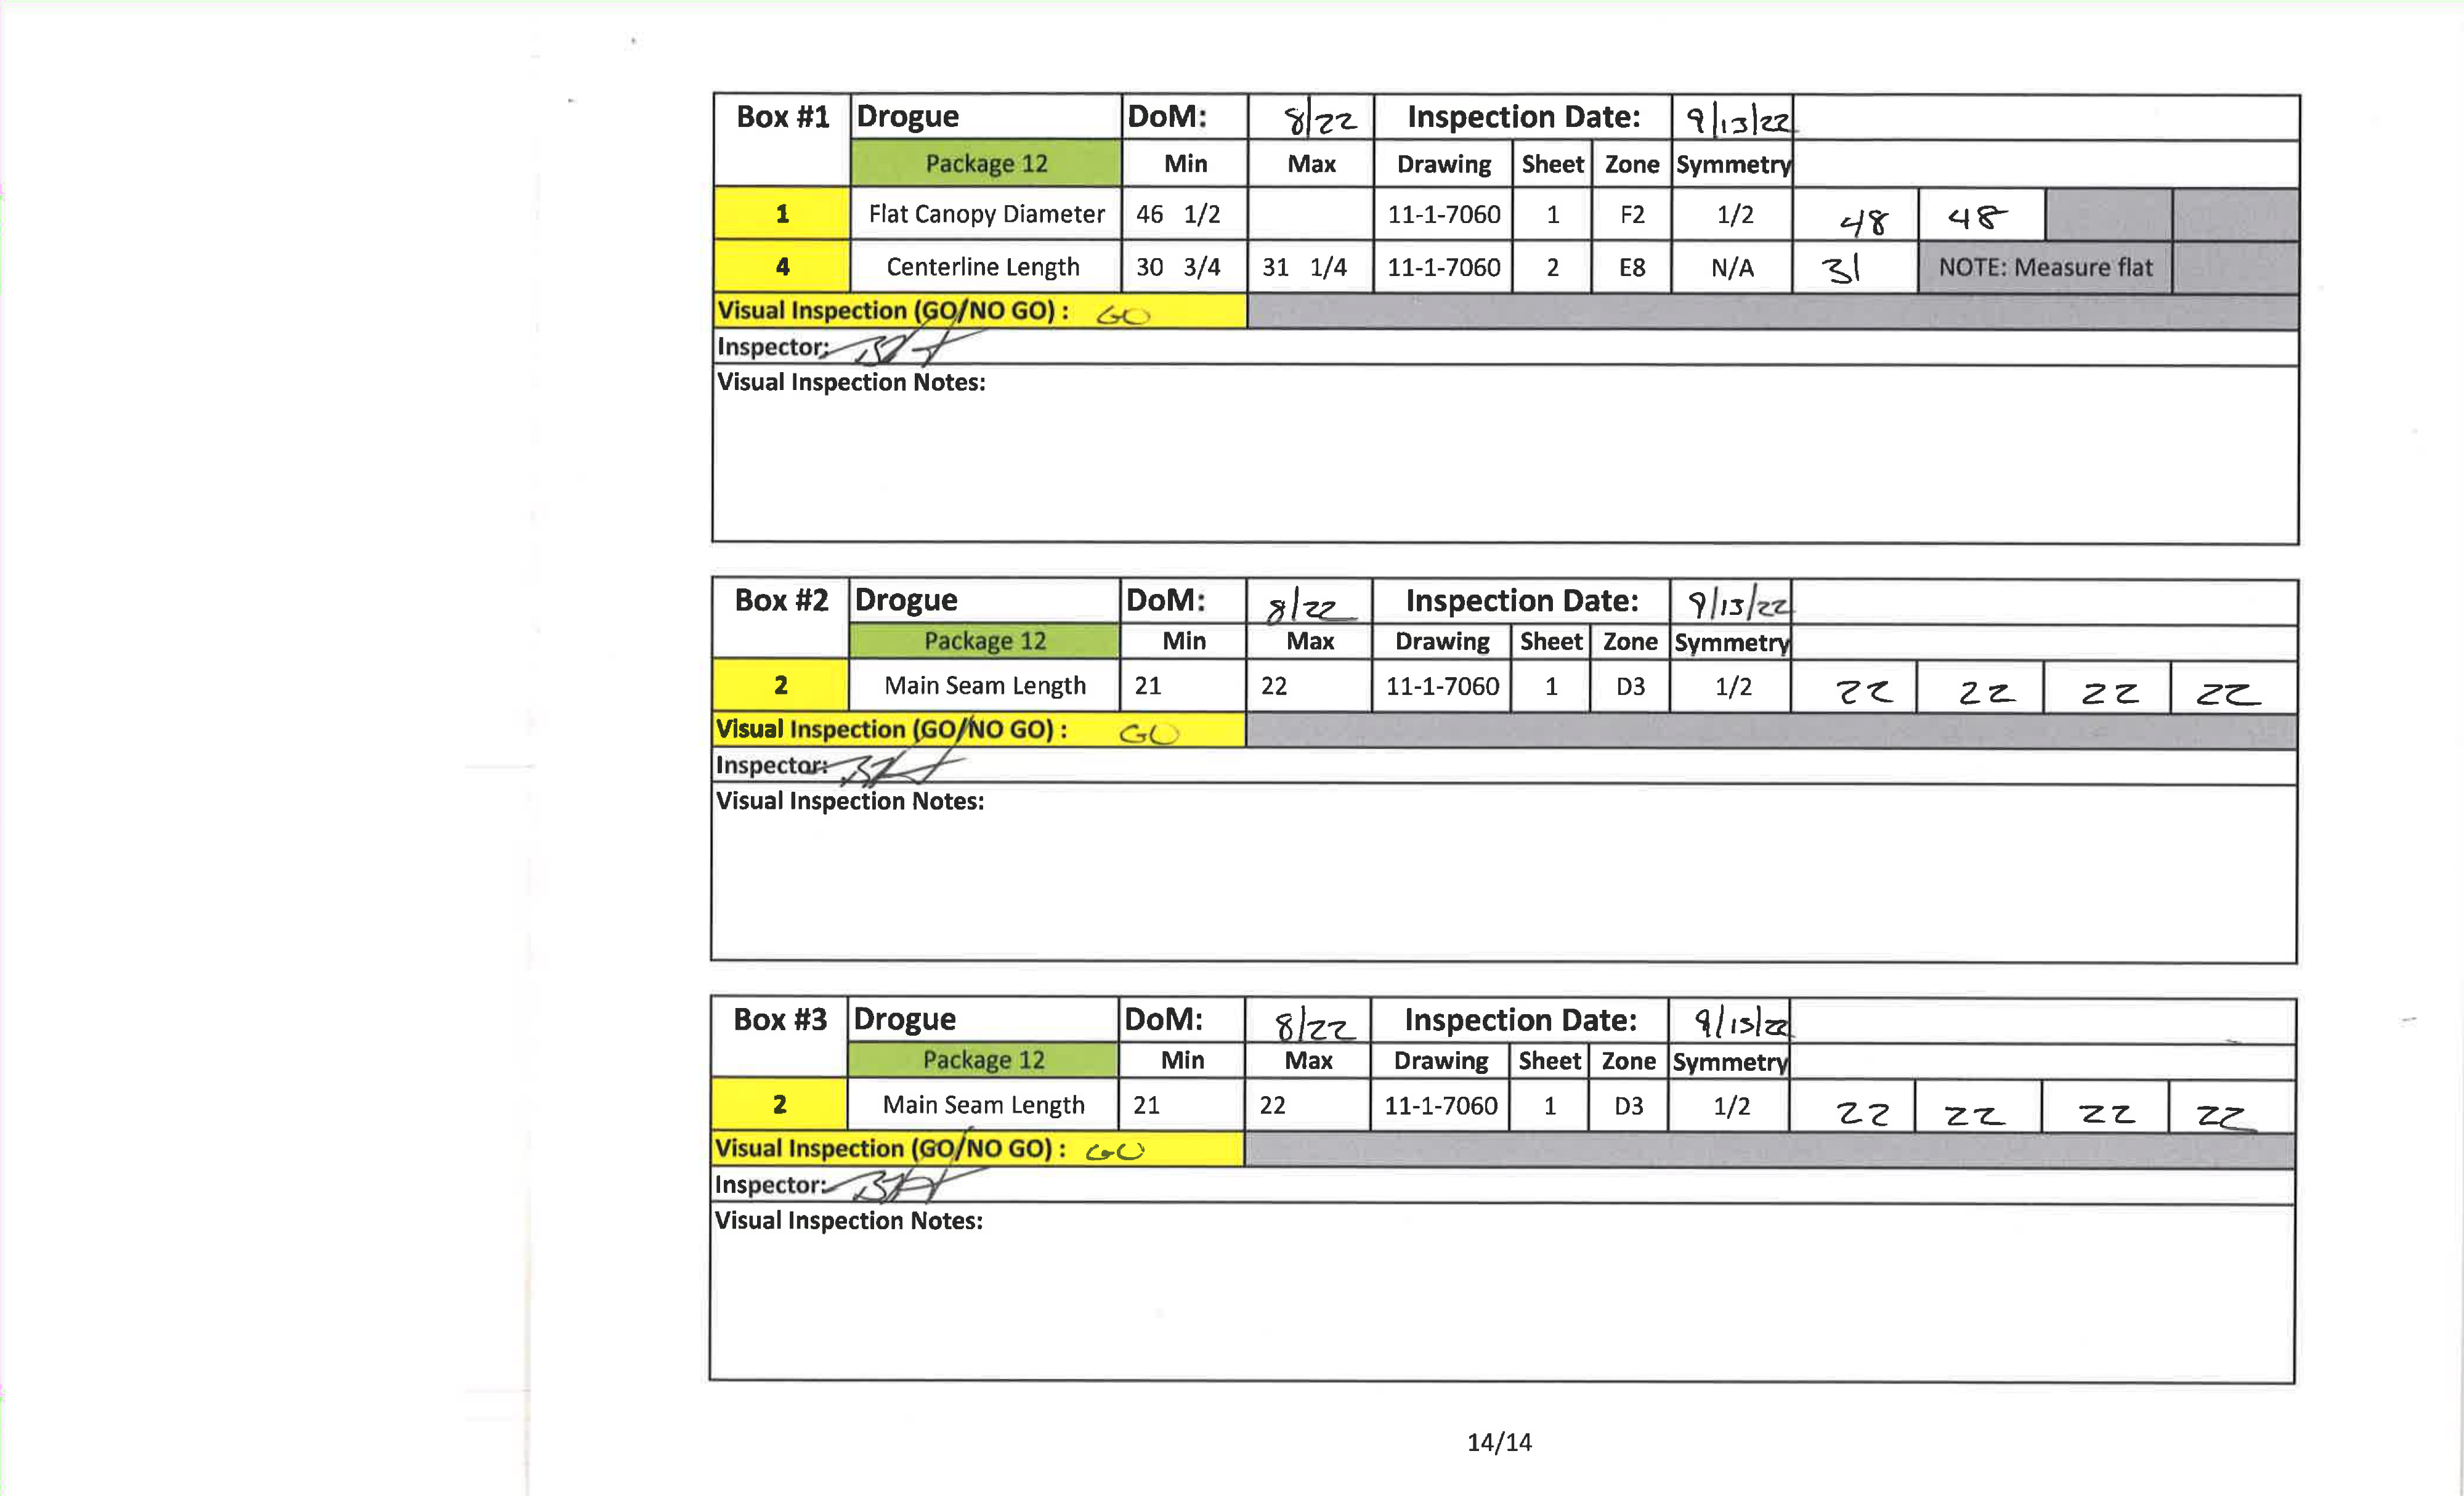 Box #1 Drogue DoM: 8/22 Inspection Date: 9/13/22
Package 12 Min Max Drawing Sheet Zone Symmetry
1 Flat Canopy Diameter 46 1/2 11-1-7060 1 F2 1/2 48 48
4 Centerline Length 30 3/4 31 1/4 11-1-7060 2 E8 N/A 31 NOTE: Measure flat
Visual Inspection (GO/NO GO) : GO
Inspector:
Visual Inspection Notes:
Box #2 Drogue DoM: 8/22 Inspection Date: 9/13/22
Package 12 Min Max Drawing Sheet Zone Symmetry
2 Main Seam Length 21 22 11-1-7060 1 D3 1/2 22 22 22 22
Visual Inspection (GO/NO GO) : GO
Inspector:
Visual Inspection Notes:
Box #3 Drogue DoM: 8/22 Inspection Date: 9/13/22
Package 12 Min Max Drawing Sheet Zone Symmetry
2 Main Seam Length 21 22 11-1-7060 1 D3 1/2 22 22 22 22
Visual Inspection (GO/NO GO) : GO
Inspector:
Visual Inspection Notes:
14/14